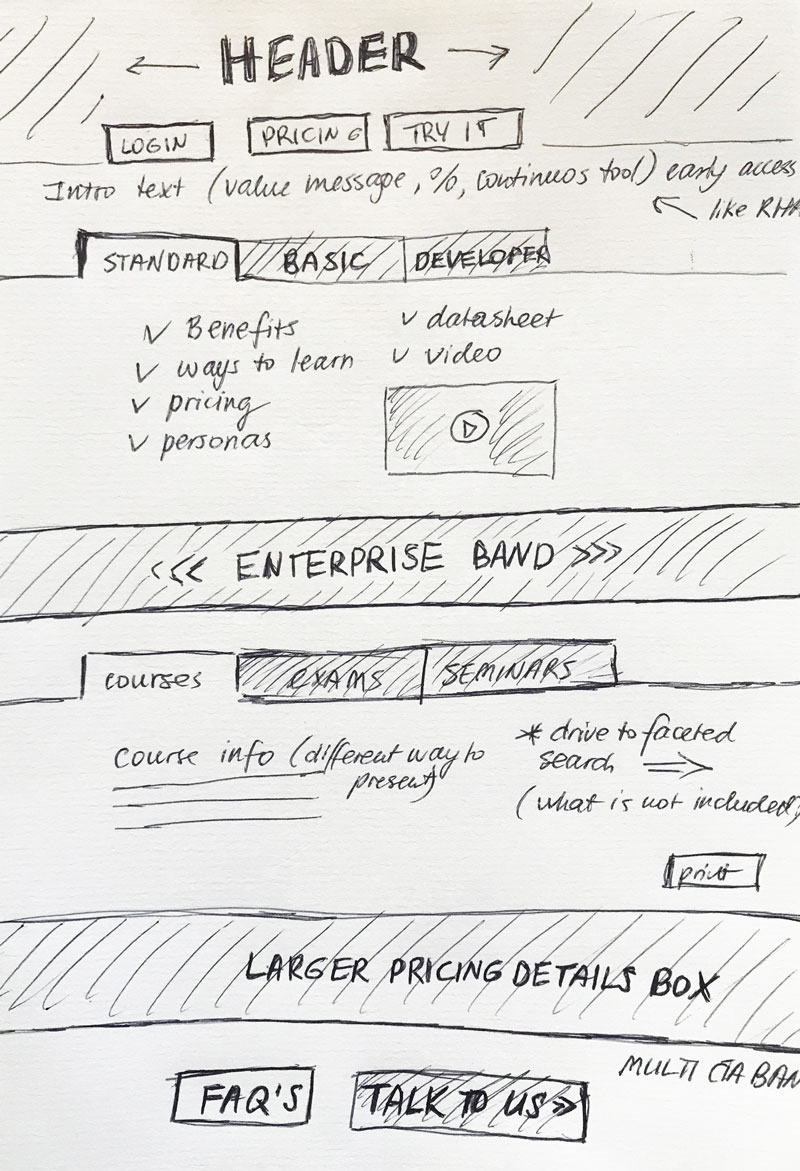 ← HEADER →
LOGIN PRICING TRY IT
Intro text (value message, %, continuos tool) early access
like RHA
STANDARD BASIC DEVELOPER
✓ Benefits
✓ ways to learn
✓ pricing
✓ personas
✓ datasheet
✓ video
<<< ENTERPRISE BAND >>>
courses EXAMS SEMINARS
course info (different way to
present)
* drive to faceted
search ⇒
(what is not included)
print
LARGER PRICING DETAILS BOX
MULTI CTA BAN
FAQ'S TALK TO US >>